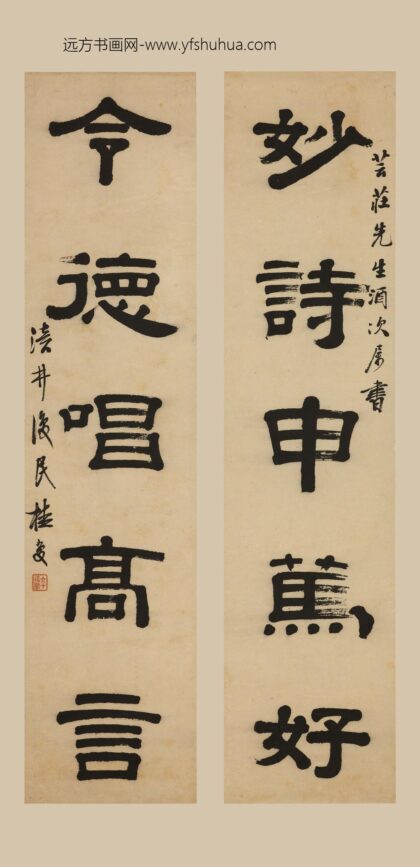 远方书画网-www.yfshuhua.com
芸莊先生酒次属書
妙詩申篤好
令德唱高言
渎井復民桂馥